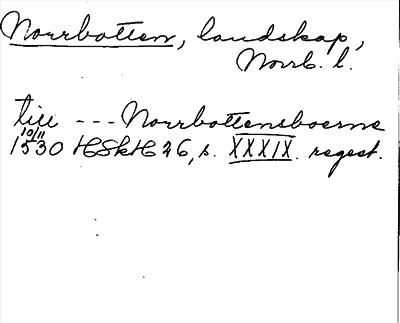 Norrbotten, landskap,
Norrb. l.
till --- Norrbottensboerne
10/11
1530 HSkH 26, s. XXXIX. regest.